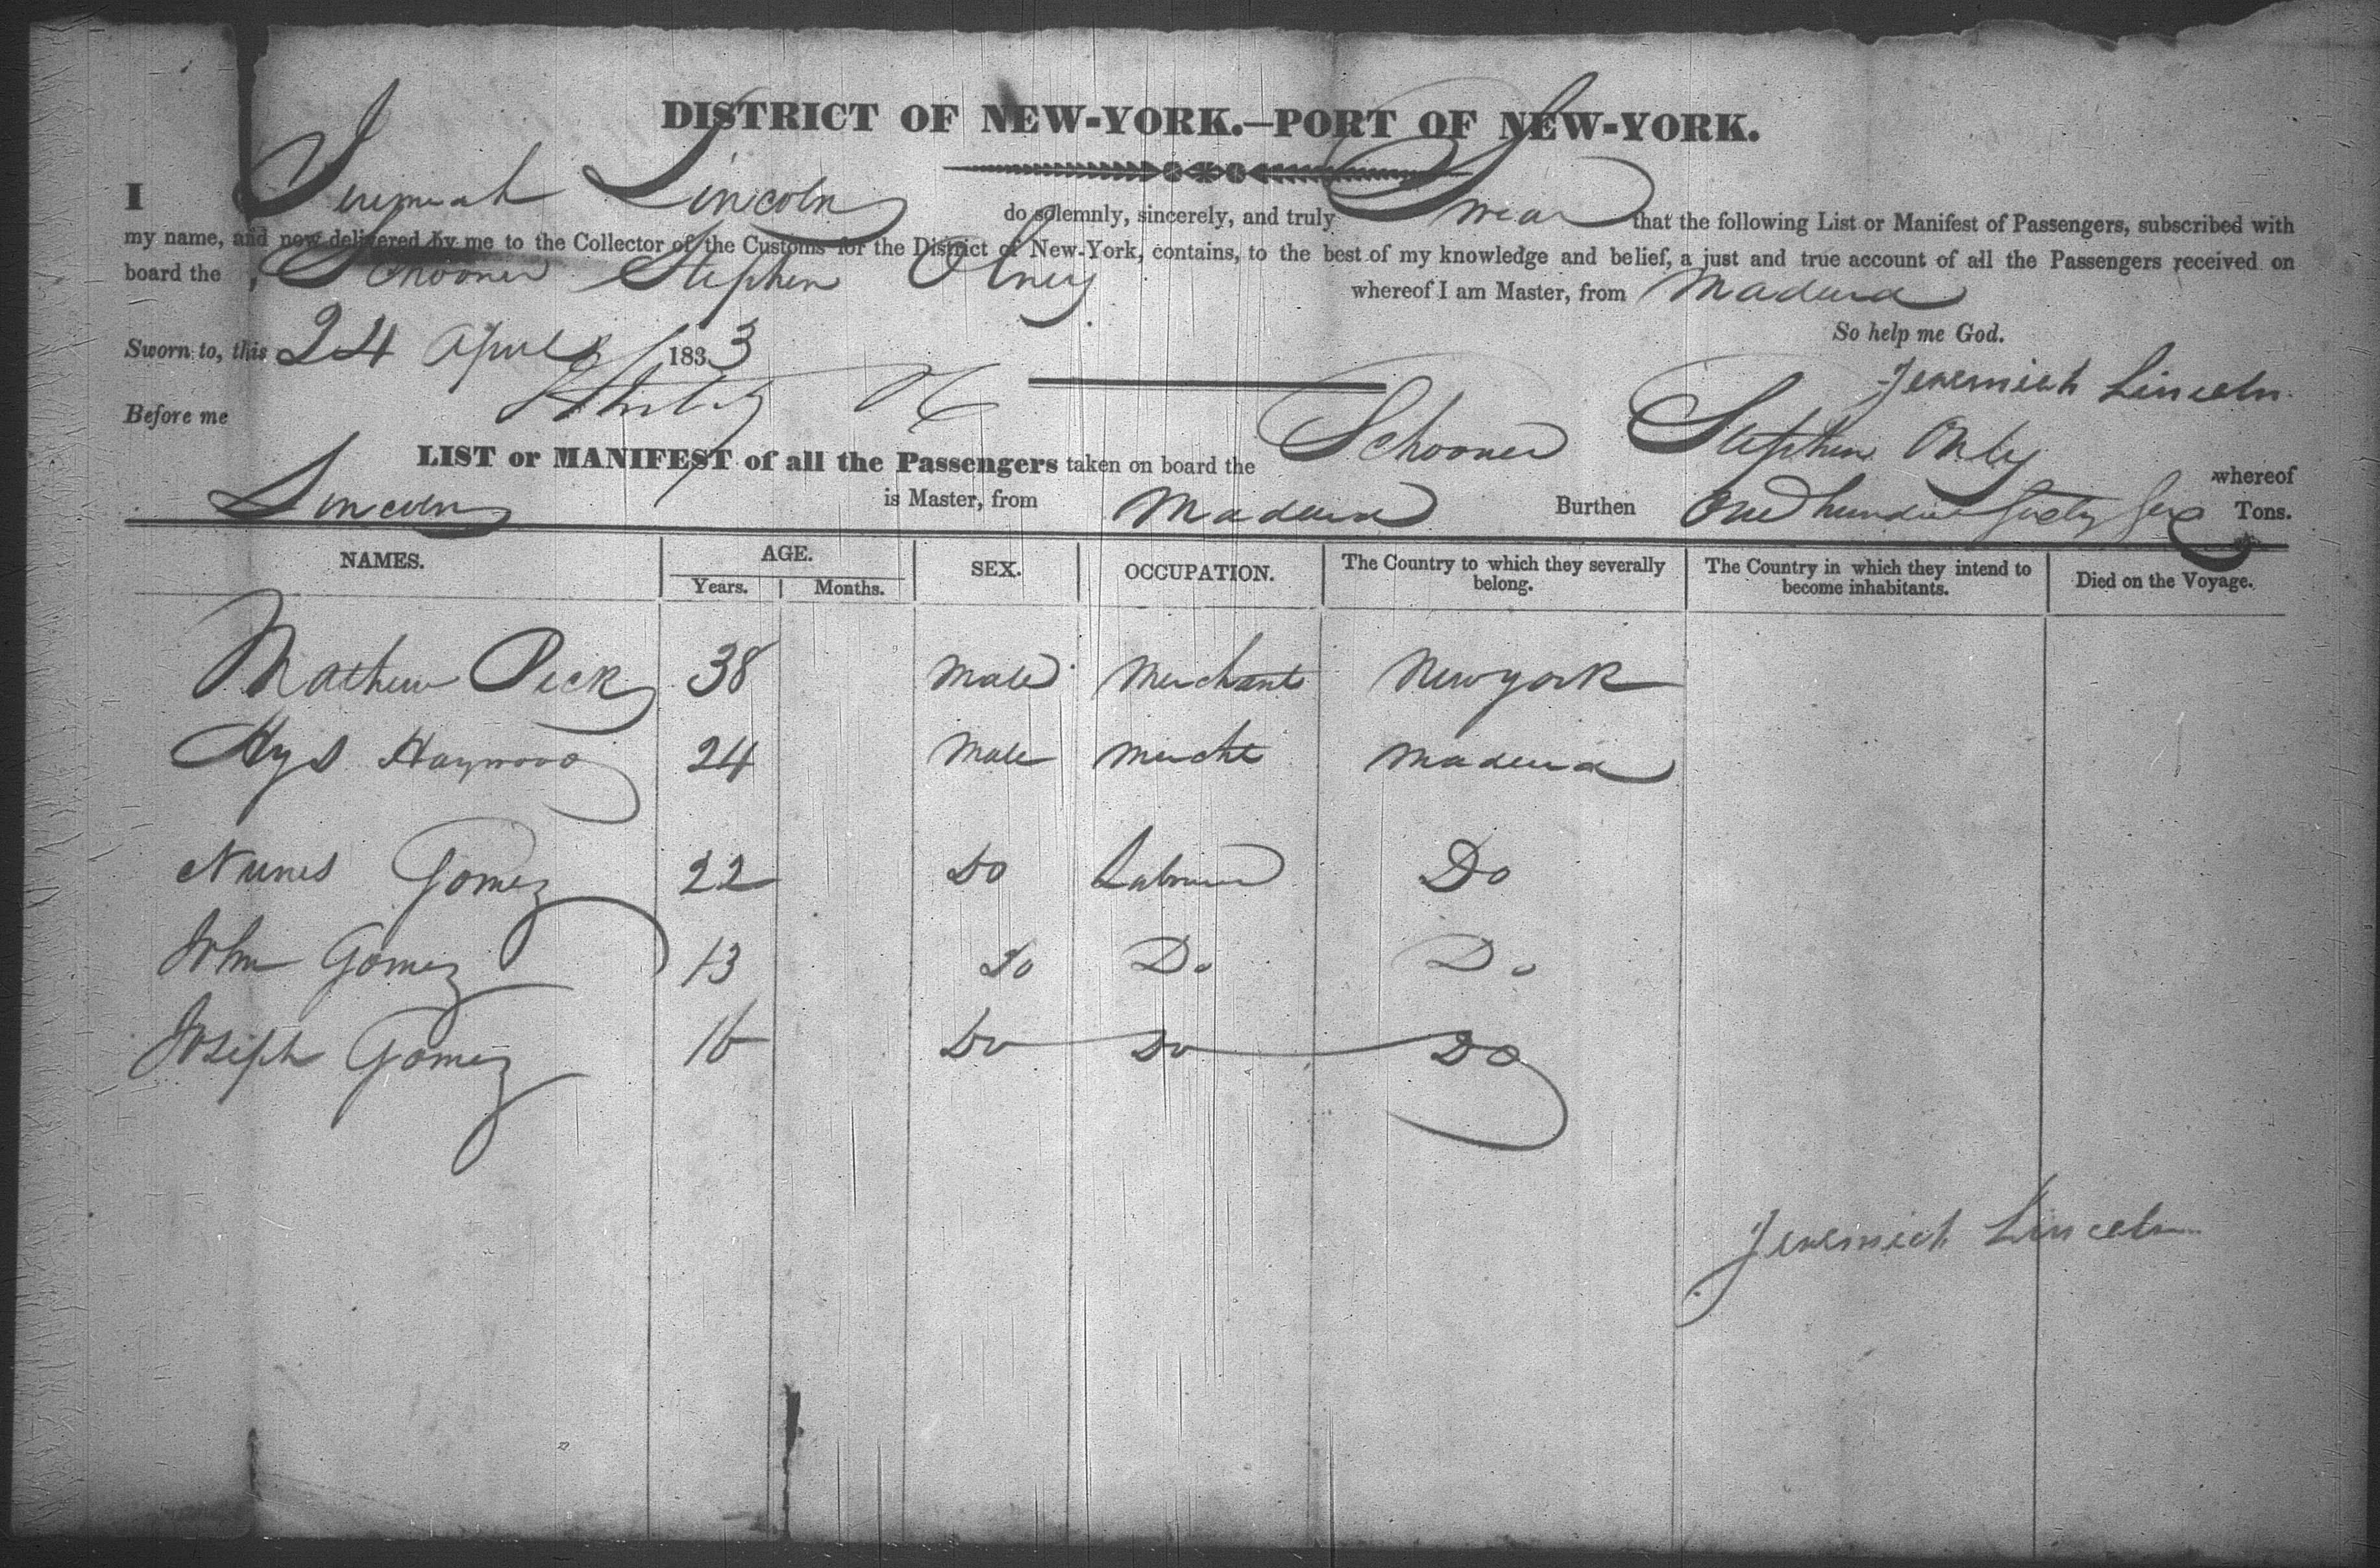 DISTRICT OF NEW-YORK.—PORT OF NEW-YORK.
I Jeremiah Lincoln do solemnly, sincerely, and truly Swear that the following List or Manifest of Passengers, subscribed with
my name, and now delivered by me to the Collector of the Customs for the District of New-York, contains, to the best of my knowledge and belief, a just and true account of all the Passengers received on
board the Schooner Stephen Olney whereof I am Master, from Madeira
So help me God.
Sworn to, this 24 April 1833
Jeremiah Lincoln
Before me
LIST or MANIFEST of all the Passengers taken on board the Schooner Stephen Onley whereof
Lincoln is Master, from Madeira Burthen One hundred Sixty Six Tons.
NAMES. AGE. SEX. OCCUPATION. The Country to which they severally belong. The Country in which they intend to become inhabitants. Died on the Voyage.
Years. Months.
Mathew Peck 38 Male Merchant New york
Haywood 24 Male Mercht Madeira
Nunes Gomez 22 Do Labourer Do
John Gomez 13 Do Do Do
Joseph Gomez 16 Do Do Do
Jeremiah Lincoln